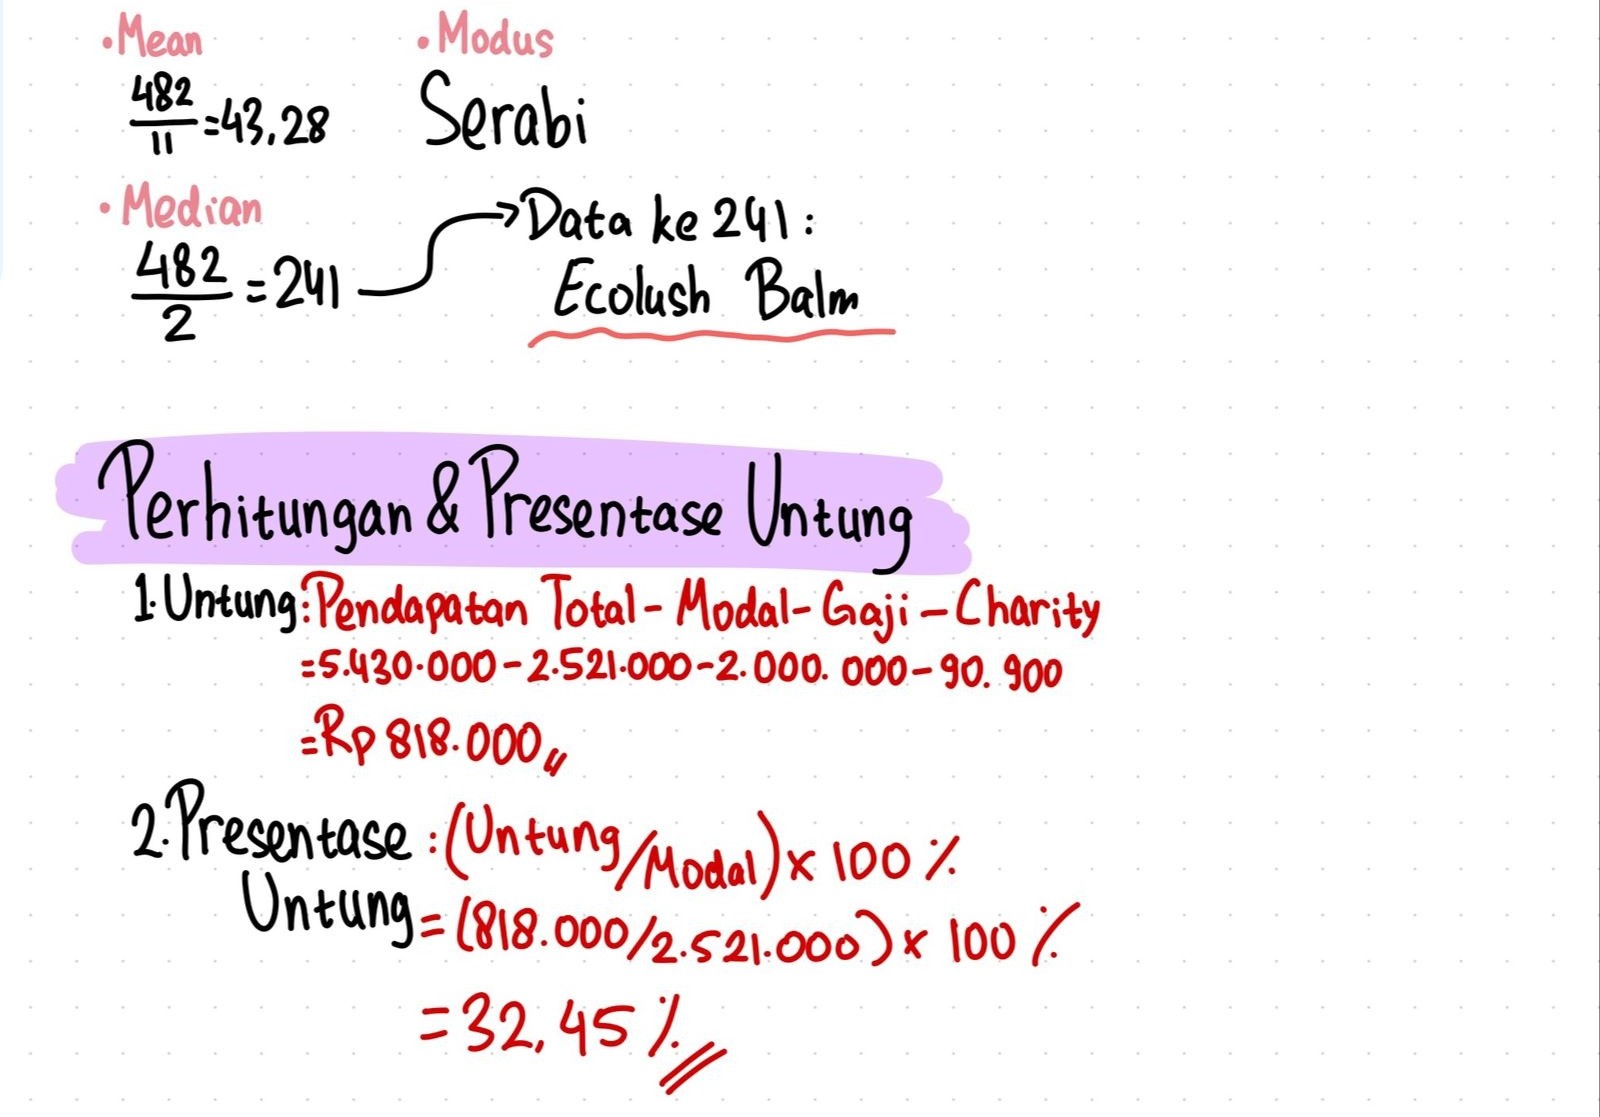 • Mean
482
11
=43,28
• Modus
Serabi
• Median
482
2
=241
Data ke 241:
Ecolush Balm
Perhitungan & Presentase Untung
1. Untung: Pendapatan Total - Modal - Gaji - Charity
=5.430.000-2.521.000-2.000.000-90.900
=Rp 818.000,,
2. Presentase Untung
: (Untung/Modal) x 100 %
= (818.000/2.521.000) x 100 %
= 32,45 %